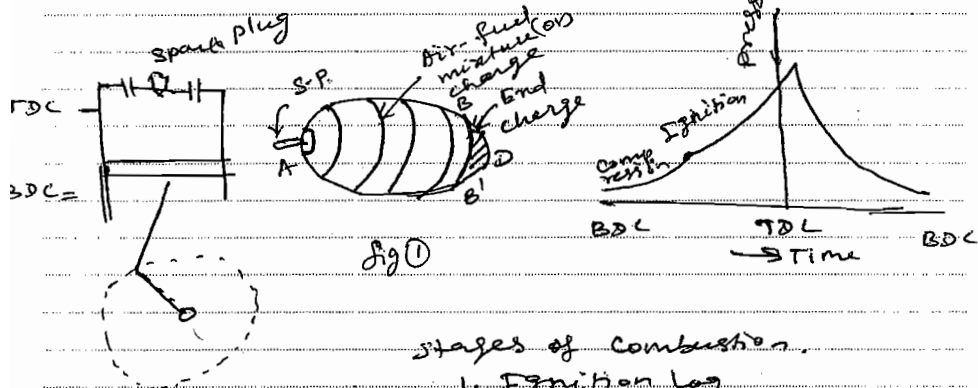 Spark plug
TDC
BDC
S.P.
Air-fuel
mixture (or)
charge
A
B
End
charge
D
B'
fig ①
Press
Ignition
Comp
ression
BDC
TDC
BDC
→ Time
Stages of Combustion.
1. Ignition Lag